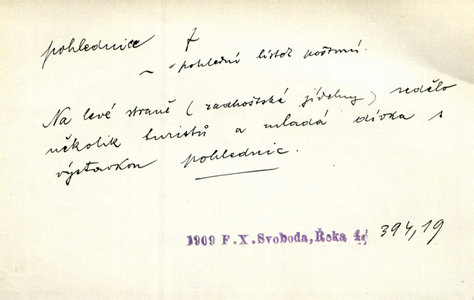 pohlednice f
~ = pohlední lístek poštovní.
Na levé straně (radhošťské jídelny) sedělo
několik turistů a mladá dívka s
výstavkou pohlednic.
1909 F.X.Svoboda, Řeka 4/ 394,19